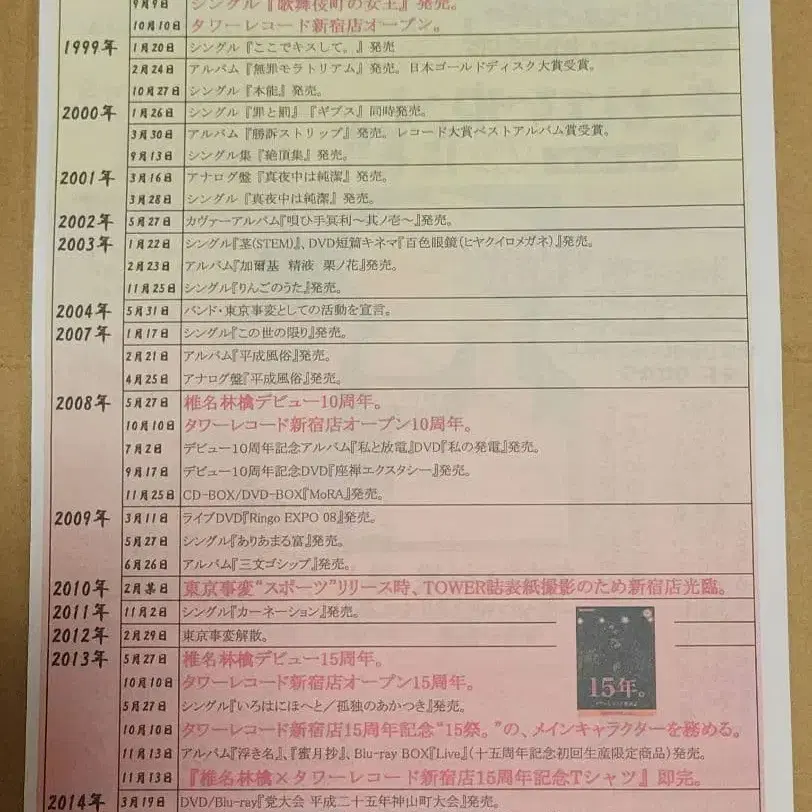 9月9日 シングル『歌舞伎町の女王』発売。
10月10日 タワーレコード新宿店オープン。
1999年 1月20日 シングル『ここでキスして。』発売
2月24日 アルバム『無罪モラトリアム』発売。日本ゴールドディスク大賞受賞。
10月27日 シングル『本能』発売。
2000年 1月26日 シングル『罪と罰』『ギブス』同時発売。
3月30日 アルバム『勝訴ストリップ』発売。レコード大賞ベストアルバム賞受賞。
9月13日 シングル集『絶頂集』発売。
2001年 3月16日 アナログ盤『真夜中は純潔』発売。
3月28日 シングル『真夜中は純潔』発売。
2002年 5月27日 カヴァーアルバム『唄ひ手冥利〜其ノ壱〜』発売。
2003年 1月22日 シングル『茎(STEM)』、DVD短篇キネマ『百色眼鏡(ヒヤクイロメガネ)』発売。
2月23日 アルバム『加爾基 精液 栗ノ花』発売。
11月25日 シングル『りんごのうた』発売。
2004年 5月31日 バンド・東京事変としての活動を宣言。
2007年 1月17日 シングル『この世の限り』発売。
2月21日 アルバム『平成風俗』発売。
4月25日 アナログ盤『平成風俗』発売。
2008年 5月27日 椎名林檎デビュー10周年。
10月10日 タワーレコード新宿店オープン10周年。
7月2日 デビュー10周年記念アルバム『私と放電』DVD『私の発電』発売。
9月17日 デビュー10周年記念DVD『座禅エクスタシー』発売。
11月25日 CD-BOX/DVD-BOX『MoRA』発売。
2009年 3月11日 ライブDVD『Ringo EXPO 08』発売。
5月27日 シングル『ありあまる富』発売。
6月26日 アルバム『三文ゴシップ』発売。
2010年 2月某日 東京事変“スポーツ”リリース時、TOWER誌表紙撮影のため新宿店光臨。
2011年 11月2日 シングル『カーネーション』発売。
2012年 2月29日 東京事変解散。
2013年 5月27日 椎名林檎デビュー15周年。
10月10日 タワーレコード新宿店オープン15周年。
15年。
5月27日 シングル『いろはにほへと/孤独のあかつき』発売。
10月10日 タワーレコード新宿店15周年記念“15祭。”の、メインキャラクターを務める。
11月13日 アルバム『浮き名』、『蜜月抄』、Blu-ray BOX『Live』(十五周年記念初回生産限定商品)発売。
11月13日 『椎名林檎×タワーレコード新宿店15周年記念Tシャツ』即完。
2014年 3月19日 DVD/Blu-ray『党大会 平成二十五年神山町大会』発売。